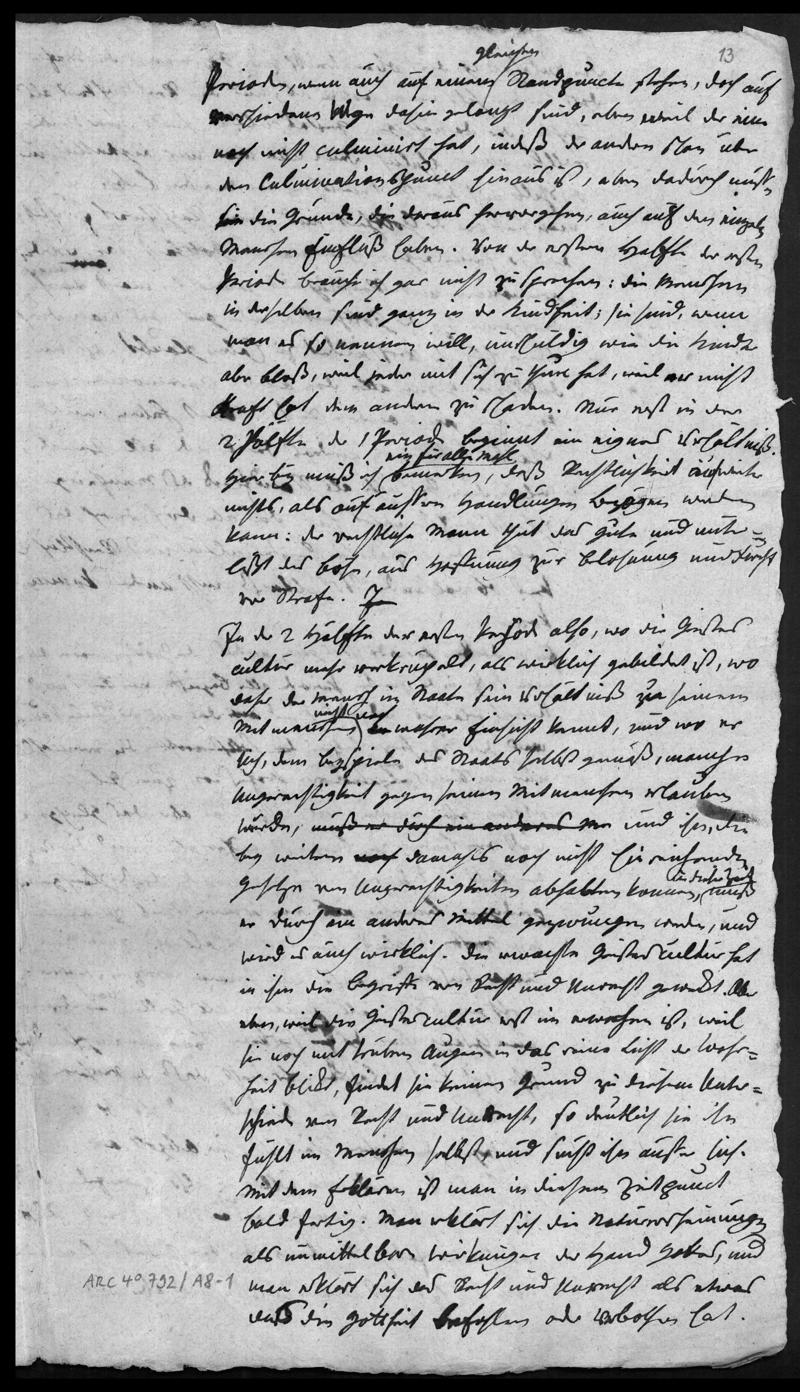 13
gleichen
Perioden, wenn auch auf einem Standpuncte stehen, doch auf
verschiedenen Wege dahin gelangt sind, eben weil der eine
noch nicht culminirt hat, indeß der andere schon über
den Culminationspunct hinaus ist, eben dadurch müssen
die Gründe, die daraus hervorgehen, auch auf den einzeln
Menschen Einfluß haben. Von der ersten Hälfte der ersten
Periode brauche ich gar nicht zu sprechen: die Menschen
in derselben sind ganz in der Kindheit; sie sind, wenn
man es so nennen will, unschuldig wie die Kinder
aber bloß, weil jeder mit sich zu thun hat, weil er nicht
Kraft hat dem andern zu schaden. Nur erst in der
2 Hälfte der 1 Periode beginnt ein eignes Verhältniß.
ein für allemal
Hierbey muß ich bemerken, daß Rechtlichkeit auf weiter
nichts, als auf äussere Handlungen bezogen werden
kann: der rechtliche Mann thut das Gute und unter-
läßt das böse, aus Hoffnung zur Belohnung und Furcht
vor Strafe.
In der 2 Hälfte der ersten Periode also, wo die Geistes
cultur mehr verkrüpelt, als wirklich gebildet ist, wo
daher der Mensch im Staate sein Verhältniß zu seinem
nicht nach
Mitmenschen wahrer Einsicht kennt, und wo er
sich, dem Beyspiele des Staats selbst gemäß, manche
Ungerechtigkeit gegen seinen Mitmenschen erlauben
würde, muß er durch ein anderes und ihn, die
bey weitem damahls noch nicht hinreichenden
in dieser Zeit
Gesetze von Ungerechtigkeiten abhalten können, muß
er durch ein anderes Mittel gezwungen werden, und
wird es auch wirklich. Die erwachte Geistescultur hat
in ihm die Begriffe von Recht und Unrecht geweckt. Aber
eben, weil die Geistescultur erst im erwachen ist, weil
sie noch mit trüben Augen in das reine Licht der Wahr=
heit blickt, findet sie keinen Grund zu diesem Unter=
schiede von Recht und Unrecht, so deutlich sie ihn
fühlt im Menschen selbst, und sucht ihn außer sich.
Mit dem Erklären ist man in diesem Zeitpunct
bald fertig. Man erklärt sich die Naturerscheinungen
als unmittelbare Wirkungen der Hand Gottes, und
man erklärt sich das Recht und Unrecht als etwas
das die Gottheit befohlen oder verboten hat.
ARC 4° 792 / A8-1